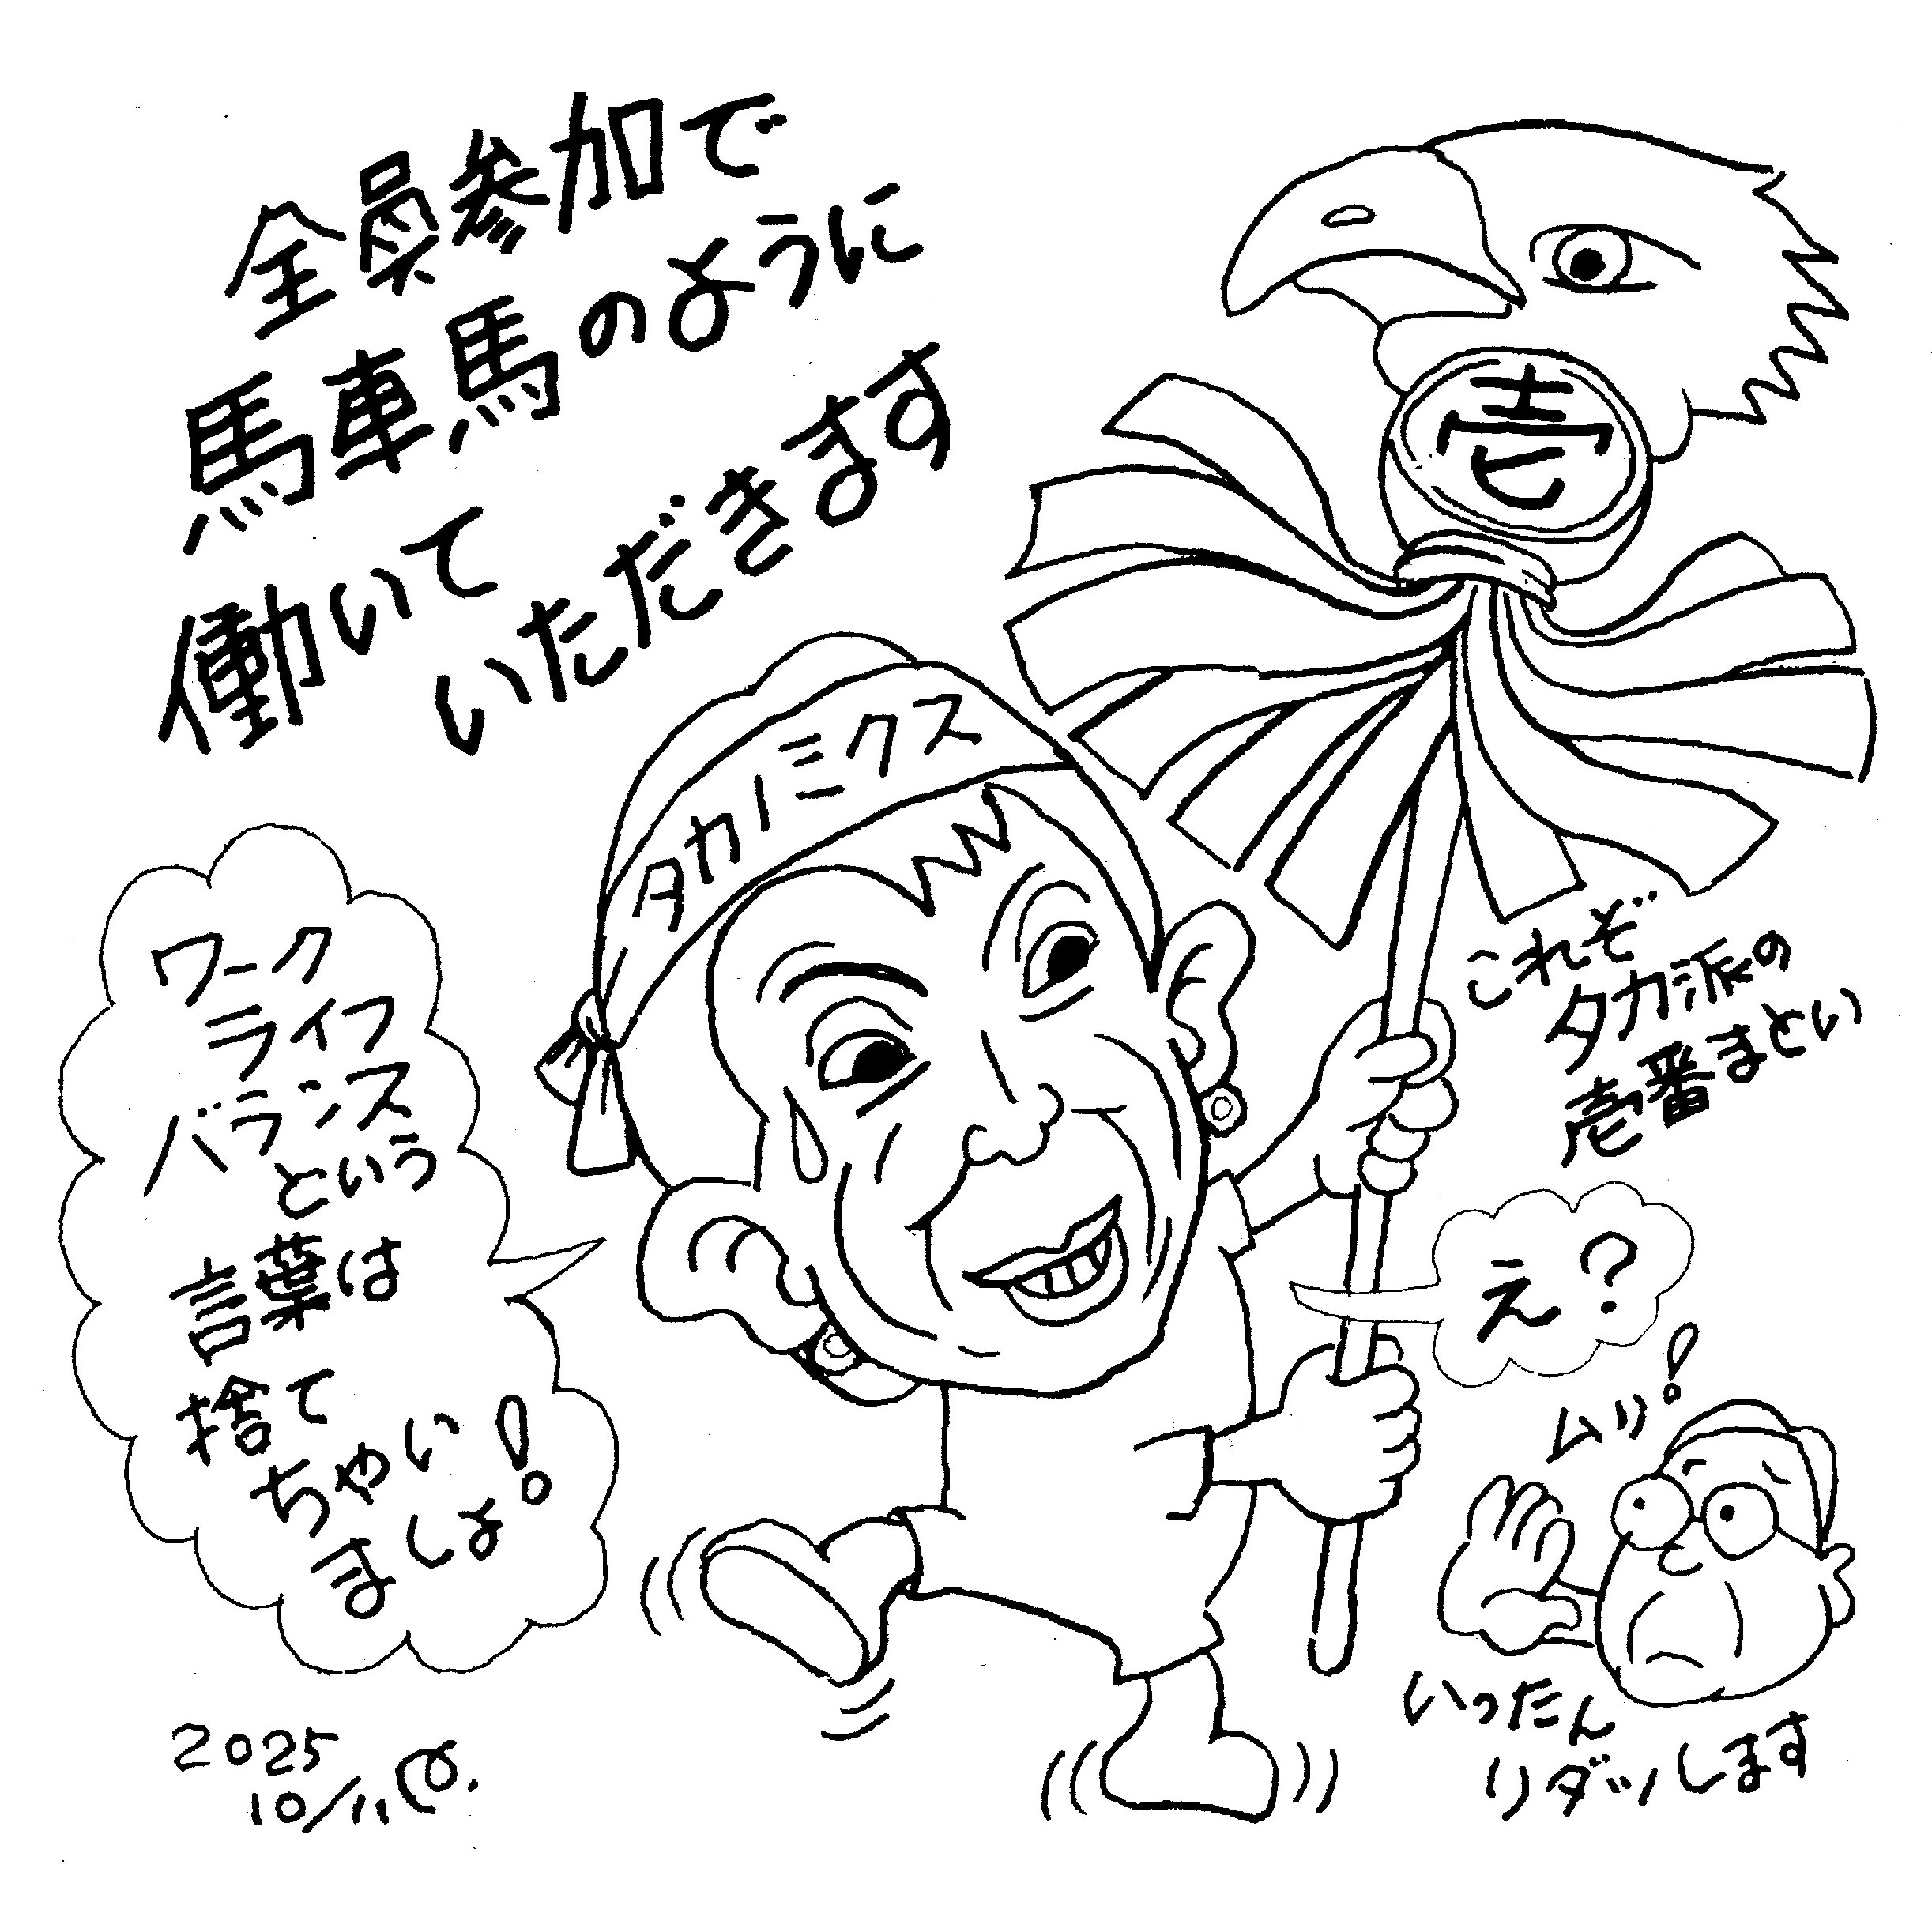 全員参加で
馬車馬のように
働いて
いただきます
壱
タカノミクス
これぞ
タカ派の
壱番まとい
ワーク
ライフ
バランス
という
言葉は
捨て
ちゃい
ましょ!
え?
ムリ!
いったん
リダツします
2025
10/11